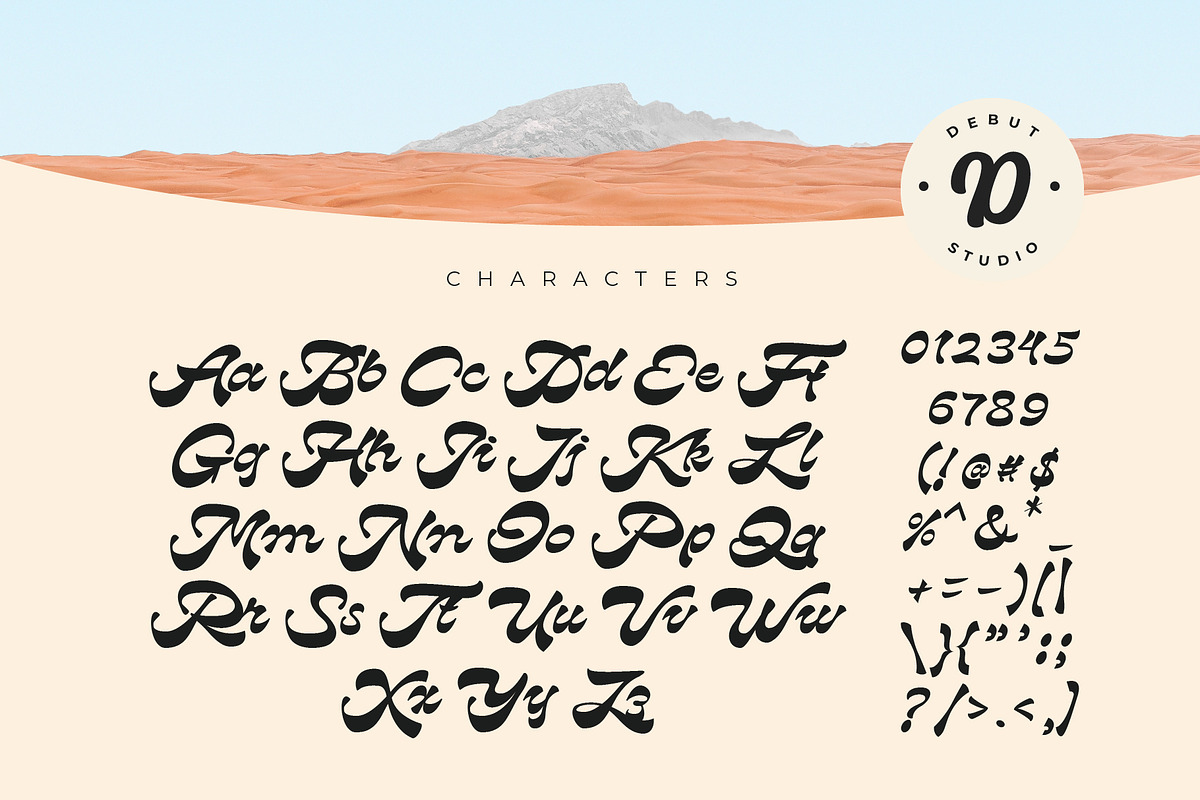 DEBUT
D
STUDIO
CHARACTERS
Aa Bb Cc Dd Ee Ff
Gg Hh Ii Jj Kk Ll
Mm Nn Oo Pp Qq
Rr Ss Tt Uu Vv Ww
Xx Yy Zz
012345
6789
(!@#$
%^&*_
+=-)[|
\}{"':;
?/>.<,]